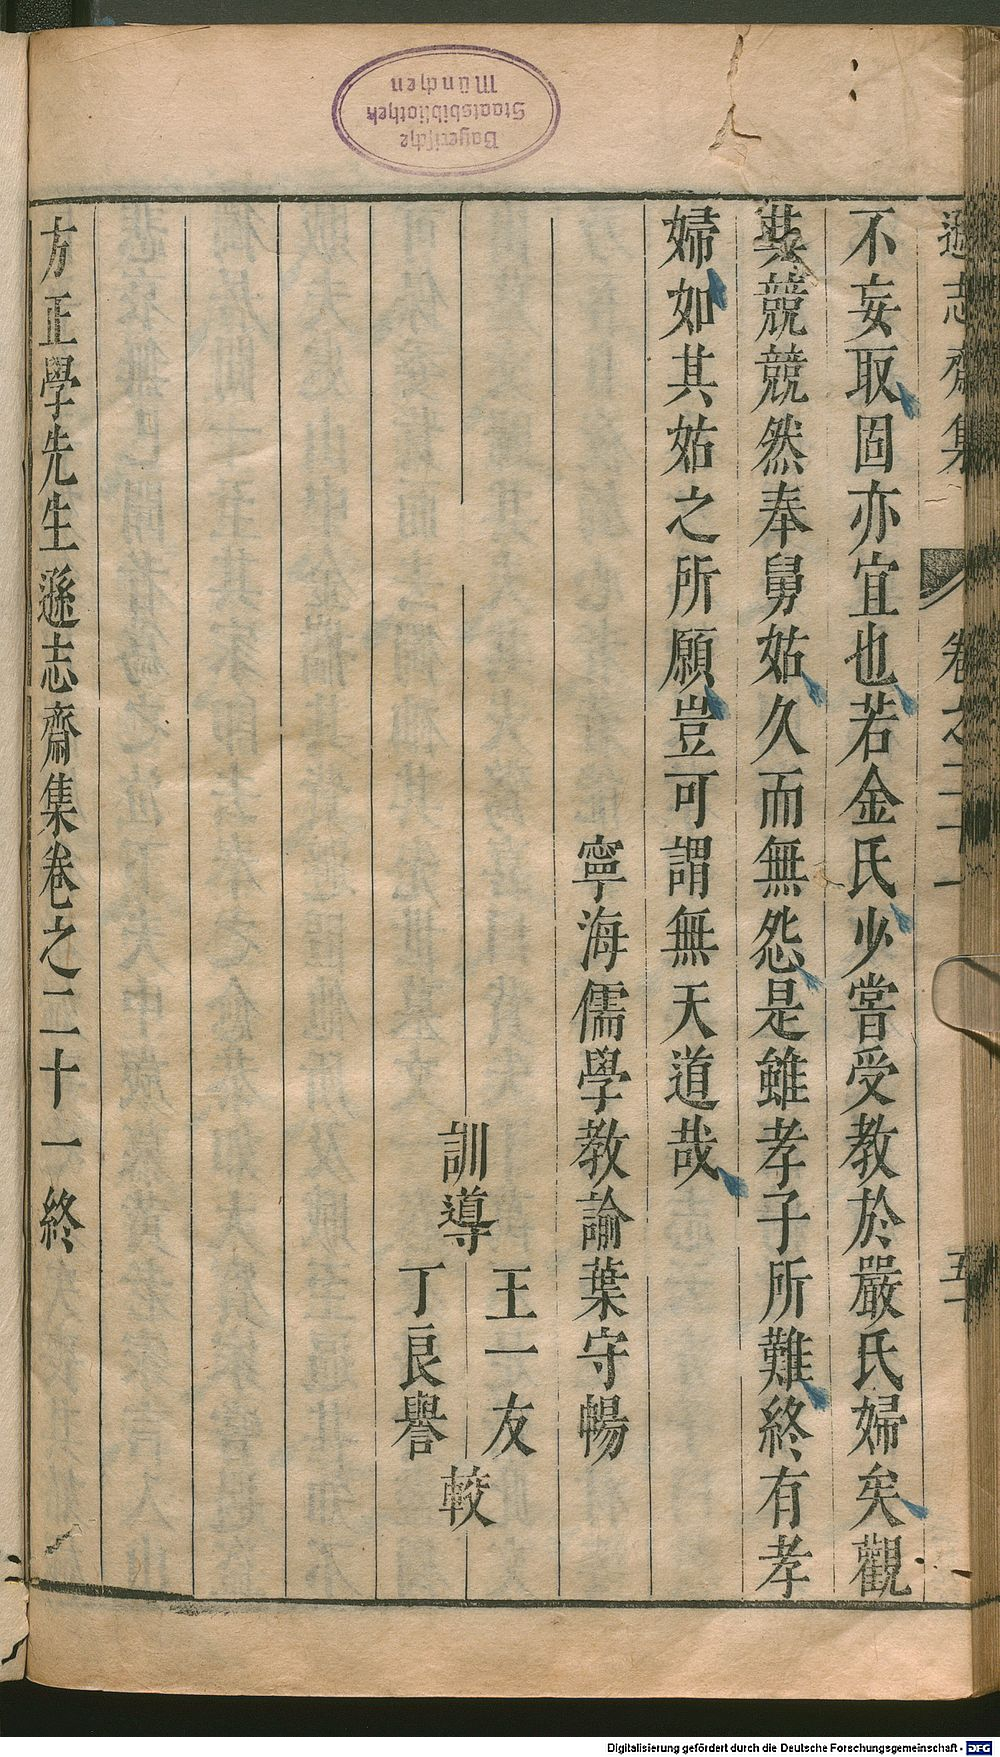 遜志齋集 卷之二十一 五十
不妄取固亦宜也若金氏少嘗受教於嚴氏婦矣觀
其競競然奉舅姑久而無怨是雖孝子所難終有孝
婦如其姑之所願豈可謂無天道哉
寧海儒學教諭葉守暢
訓導
王一友
丁良譽
較
方正學先生遜志齋集卷之二十一終
Bayerische
Staatsbibliothek
München
Digitalisierung gefördert durch die Deutsche Forschungsgemeinschaft - DFG